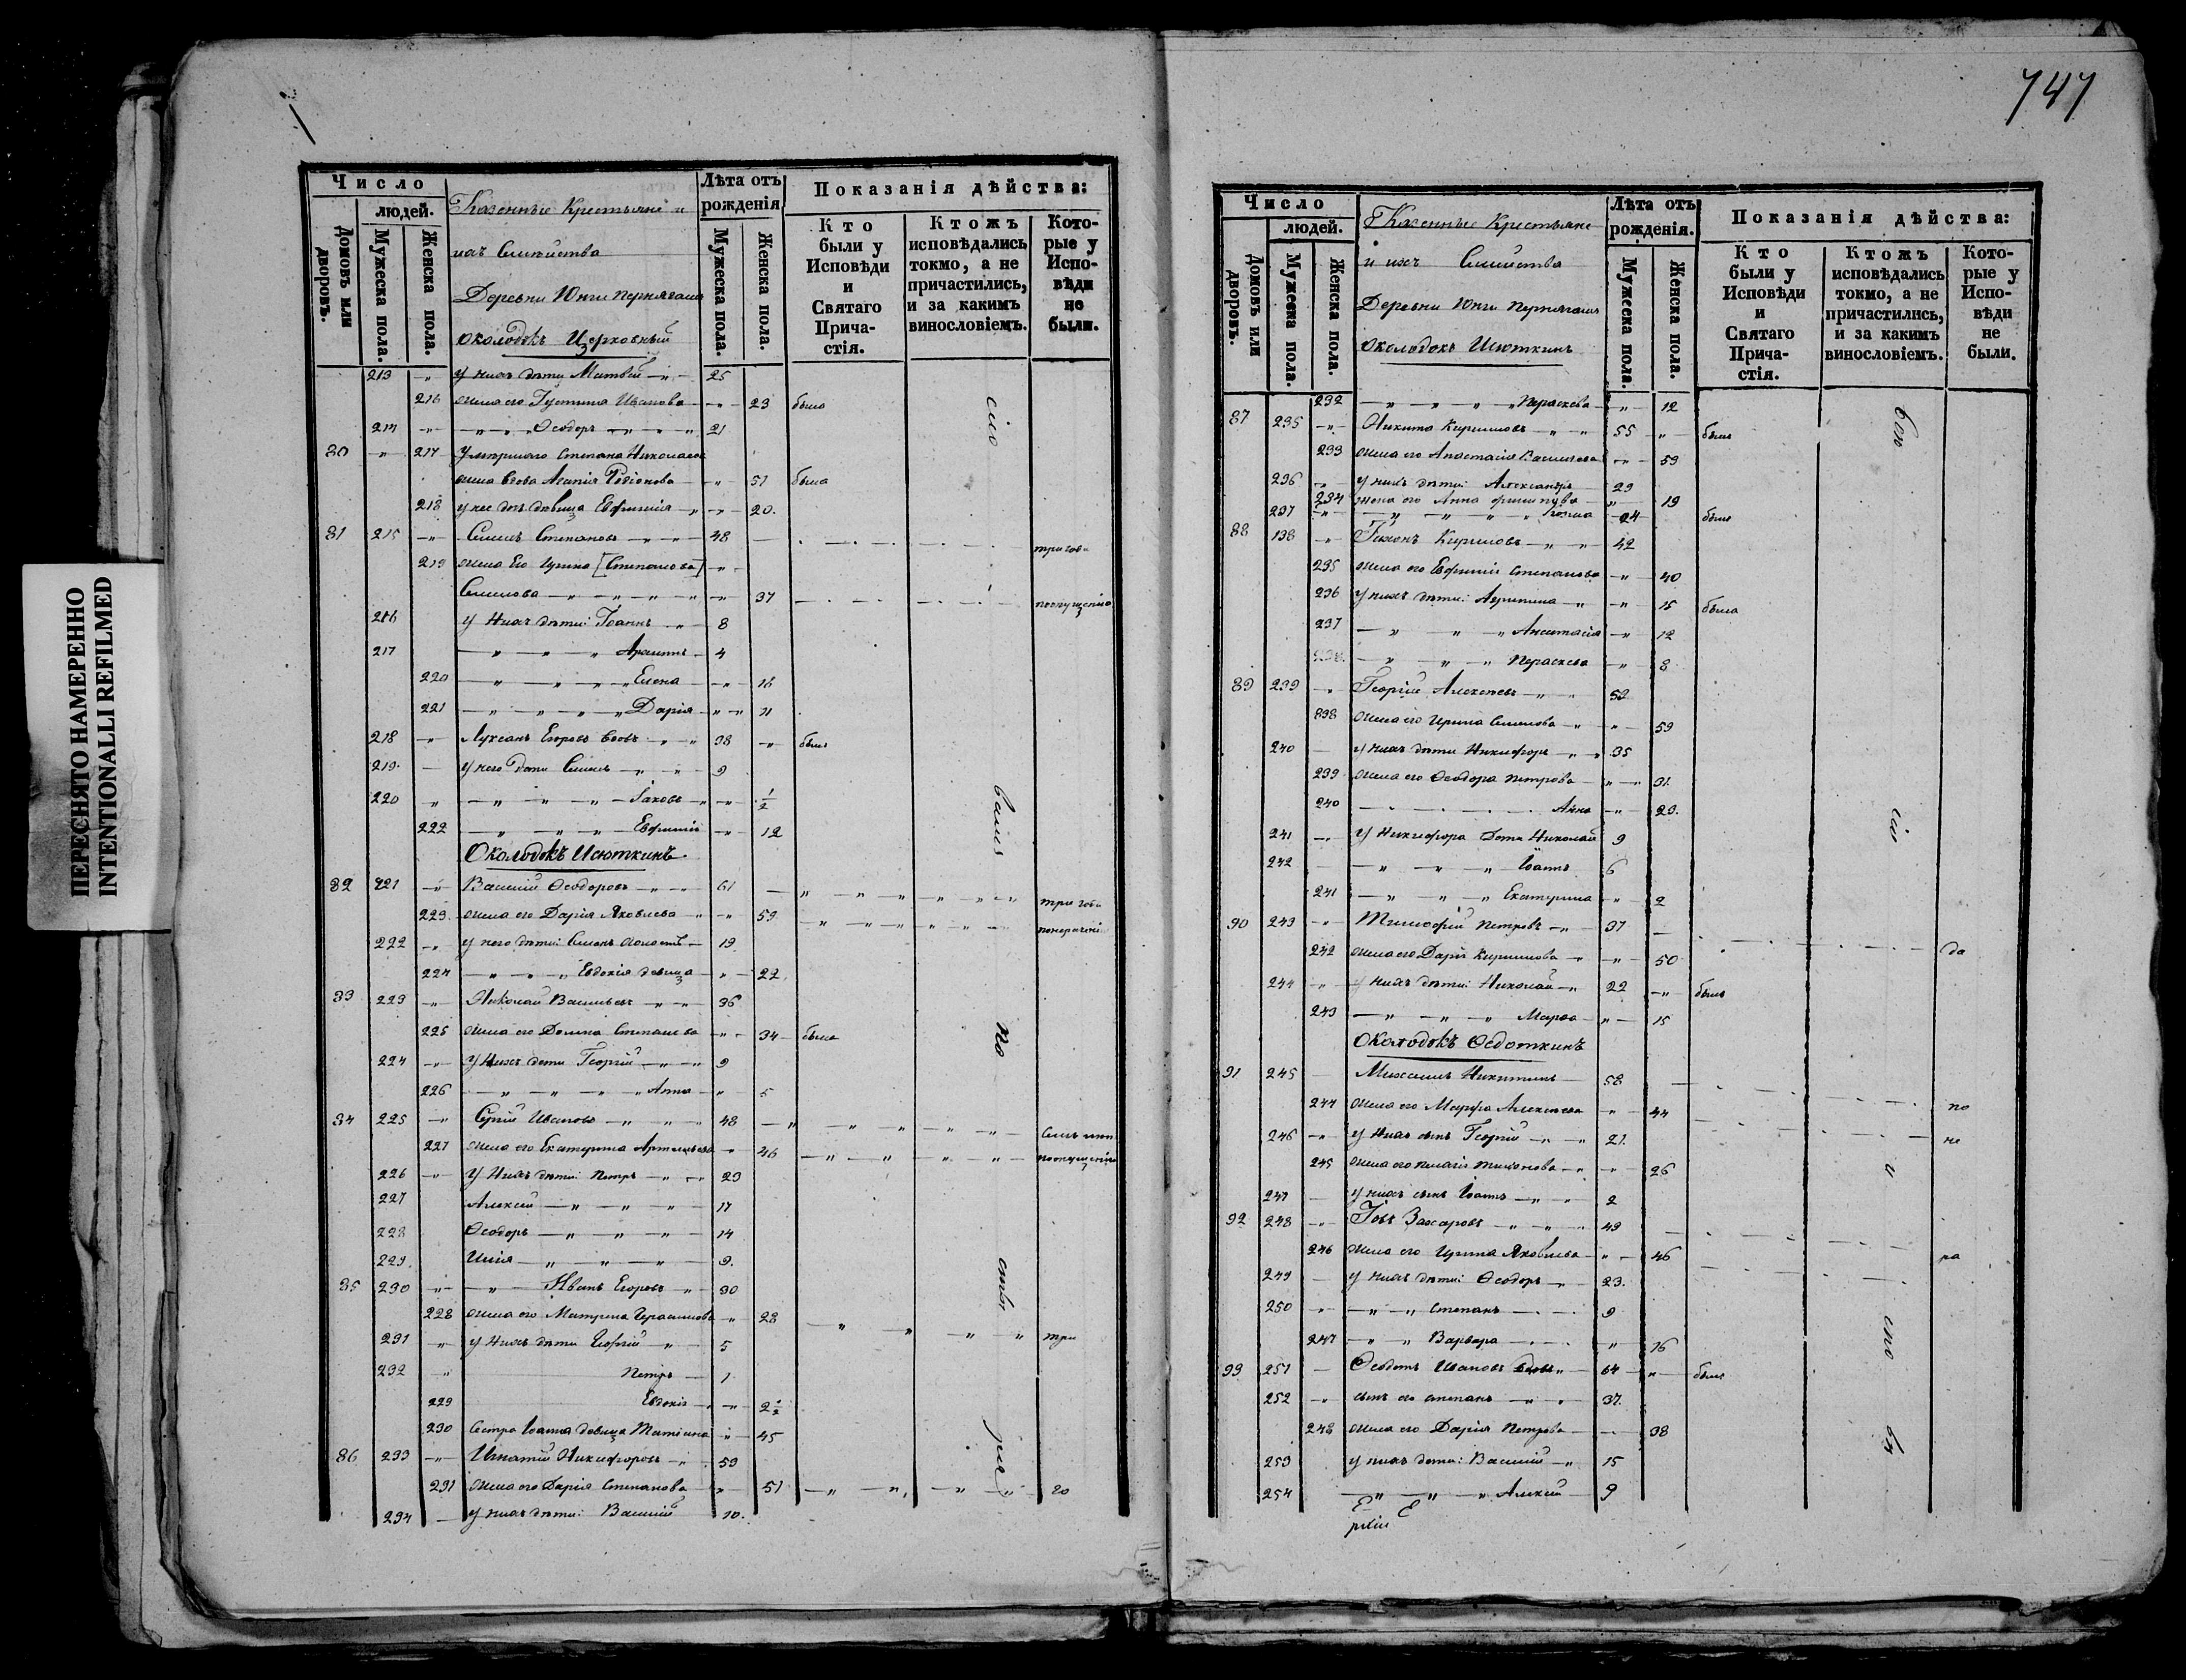 747
ПЕРЕСНЯТО НАМЕРЕННО
INTENTIONALLI REFILMED
Число
людей.
Домовъ или дворовъ.
Мужеска пола.
Женска пола.
Казенные Крестьяне и
ихъ Семейства
Деревни Юнги
околодокъ Церковный
Лѣта отъ рожденія
Мужеска пола.
Женска пола.
Показанія дѣйства:
Кто были у Исповѣди и Святаго Причастія.
Ктожъ исповѣдались токмо, а не причастились, и за какимъ винословіемъ.
Которые у Исповѣди не были.
213 у нихъ дѣти Матвей 25
216 жена его Иванова 23 была
214 Ѳеодоръ 21
80 217 Умершаго Степана Николаева
жена вдова Агапія Родіонова 51 была
218 у нее дочь дѣвица Евфимія 20.
81 215 Семенъ Степановъ 48 три года
219 жена Его Ирина [Степанова]
Семенова 37 поопущенію
216 у Нихъ дѣти: Іоаннъ 8
217 4
220 Елена 18
221 Дарія 11
218 Егоровъ вдовъ 38 былъ
219 у него дѣти Семенъ 9
220 Іаковъ 1/2
222 Евфимія 12
Околодокъ Исюткинъ
82 221 Василій Ѳеодоровъ 61 три года
223 жена его Дарія Яковлева 59
222 у него дѣти: Семенъ холостъ 19
224 Евдокія девица 22
83 223 Николай Васильевъ 36
225 жена его Степанова 34 была
224 у Нихъ дѣти Георгій 9
226 Анна 5
84 225 Сергій Ивановъ 48
227 жена его Екатерина Артемьева 46 поопущенію
226 у Нихъ дѣти: Петръ 23
227 Алексей 17
228 Ѳеодоръ 14
229 Илія 9.
85 230 Иванъ Егоровъ 30
228 жена его Матрена Герасимова 28 три
231 у Нихъ дѣти Георгій 5
232 Петръ 1
229 Евдокія 2 1/2
230 Сестра Іоанна девица Матіяна 45
86 233 Игнатій Никифоровъ 53
231 жена его Дарія Степанова 51 го
234 у нихъ дѣти: Василій 10.
Число
людей.
Домовъ или дворовъ.
Мужеска пола.
Женска пола.
Казенные Крестьяне
и ихъ Семейства
Деревни Юнги
околодокъ Исюткинъ
Лѣта отъ рожденія.
Мужеска пола.
Женска пола.
Показанія дѣйства:
Кто были у Исповѣди и Святаго Причастія.
Ктожъ исповѣдались токмо, а не причастились, и за какимъ винословіемъ.
Которые у Исповѣди не были.
232 Параскева 12
87 235 Никита Кириловъ 55 былъ
233 жена его Анастасія Васильева 53
236 у нихъ дѣти: Александръ 23
234 жена его Анна Филипува 19
237 Козма 24 былъ
88 138 Тихонъ Кириловъ 42
235 жена его Евфимія Степанова 40
236 у нихъ дѣти: Агрипина 15 была
237 Анастасія 12
238 Параскева 8
89 239 Георгій Алексеевъ 52
838 жена его Ирина Семенова 59
240 у нихъ дѣти Никифоръ 35
239 жена его Ѳеодора Петрова 31
240 Анна 23.
241 у Никифора дѣти Николай 9
242 Іоаннъ 6
241 Екатерина 2
90 243 Тимофей Петровъ 37
242 жена его Дарія Кирилова 50 да
244 у нихъ дѣти: Николай 22 былъ
243 Марѳа 15
Околодокъ Ѳедоткинъ
91 245 Михаилъ Никитинъ 58
244 жена его Марѳа Алексеева 44 по
246 у Нихъ сынъ Георгій 21. не
245 жена его Пелагія Тихонова 26
247 у нихъ сынъ Іоаннъ 2
92 248 Іовъ Захаровъ 49
246 жена его Ирина Яковлева 46 ра
249 у нихъ дѣти: Ѳеодоръ 23.
250 Степанъ 9
247 Варвара 16
93 251 Ѳеодотъ Ивановъ вдовъ 64 былъ
252 сынъ его Степанъ 37.
248 жена его Дарія Петрова 38
253 у нихъ дѣти: Василій 15
254 Алексей 9